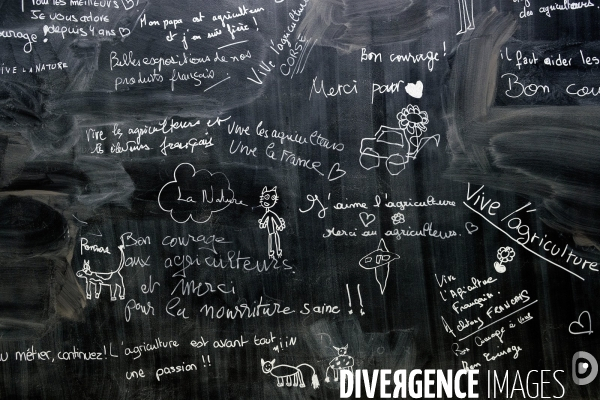 les meilleurs
Je vous adore
depuis 4 ans
VIVE LA NATURE
Mon papa est agriculteur
et j'en suis fière !
Belles expositions de nos
produits français
Vive l'agriculture
des agriculteurs.
Bon courage !
Merci pour
il faut aider les
Bon cou
Vive les agriculteurs et
les éleveurs français
Vive les agriculteurs
Vive la France
La Nature
J'aime l'agriculture
Merci au agriculteurs.
Vive l'agriculture
Bon courage
aux agriculteurs.
et Merci
pour la nourriture saine !!
Vive
L'Apiculture
Français
FRANCAIS
Bon courage
métier, continuez ! L'agriculture est avant tout
une passion !!
DIVERGENCE IMAGES